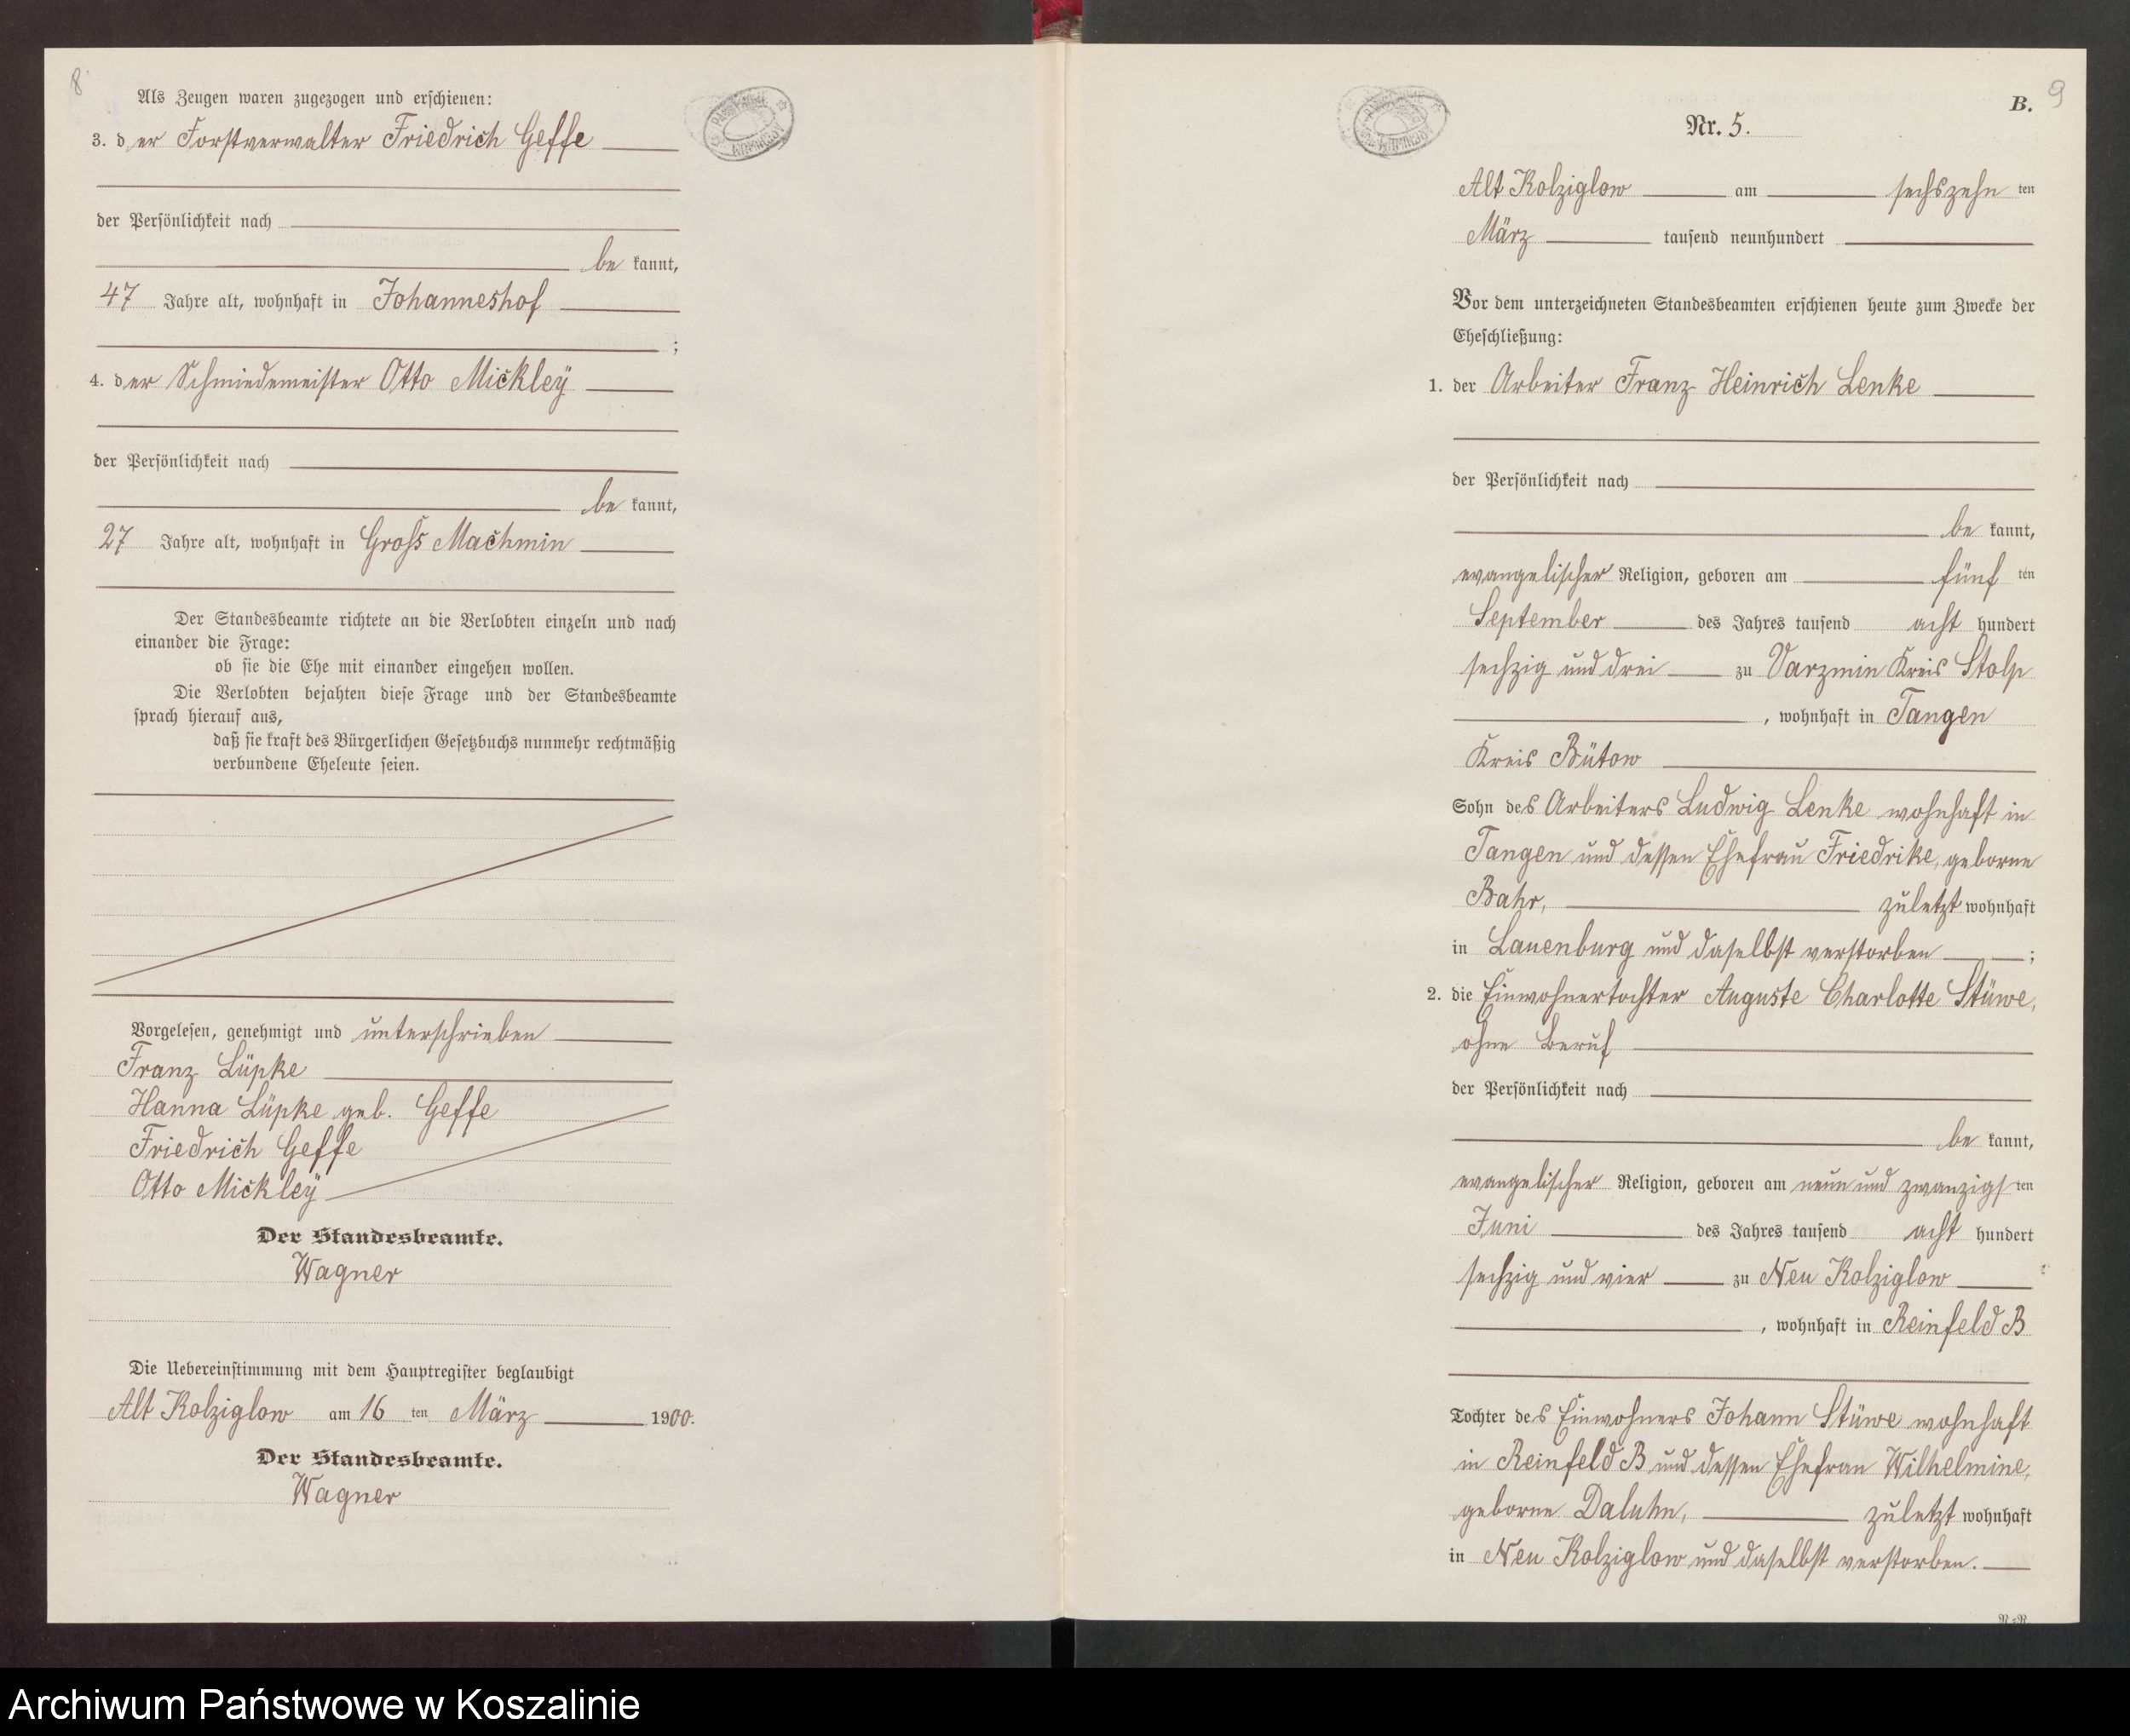 8
Als Zeugen waren zugezogen und erschienen:
3. der Forstverwalter Friedrich Geffe
der Persönlichkeit nach
be kannt,
47 Jahre alt, wohnhaft in Johanneshof
;
4. der Schmiedemeister Otto Mickleÿ
der Persönlichkeit nach
be kannt,
27 Jahre alt, wohnhaft in Gross Machmin
Der Standesbeamte richtete an die Verlobten einzeln und nach
einander die Frage:
ob sie die Ehe mit einander eingehen wollen.
Die Verlobten bejahten diese Frage und der Standesbeamte
sprach hierauf aus,
daß sie kraft des Bürgerlichen Gesetzbuchs nunmehr rechtmäßig
verbundene Eheleute seien.
Vorgelesen, genehmigt und unterschrieben
Franz Lüpke
Hanna Lüpke geb. Geffe
Friedrich Geffe
Otto Mickleÿ
Der Standesbeamte.
Wagner
Die Uebereinstimmung mit dem Hauptregister beglaubigt
Alt Kolziglow am 16 ten März 1900.
Der Standesbeamte.
Wagner
B. 9
Nr. 5.
Alt Kolziglow am sechszehn ten
März tausend neunhundert
Vor dem unterzeichneten Standesbeamten erschienen heute zum Zwecke der
Eheschließung:
1. der Arbeiter Franz Heinrich Lenke
der Persönlichkeit nach
be kannt,
evangelischer Religion, geboren am fünf ten
September des Jahres tausend acht hundert
sechzig und drei zu Varzmin Kreis Stolp
, wohnhaft in Tangen
Kreis Bütow
Sohn des Arbeiters Ludwig Lenke wohnhaft in
Tangen und dessen Ehefrau Friedrike, geborne
Bahr, zuletzt wohnhaft
in Lauenburg und daselbst verstorben ;
2. die Einwohnertochter Auguste Charlotte Stüwe,
ohne Beruf
der Persönlichkeit nach
be kannt,
evangelischer Religion, geboren am neun und zwanzigsten
Juni des Jahres tausend acht hundert
sechzig und vier zu Neu Kolziglow
, wohnhaft in Reinfeld B
Tochter des Einwohners Johann Stüwe wohnhaft
in Reinfeld B und dessen Ehefrau Wilhelmine,
geborne Daluhn, zuletzt wohnhaft
in Neu Kolziglow und daselbst verstorben.
Archiwum Państwowe w Koszalinie